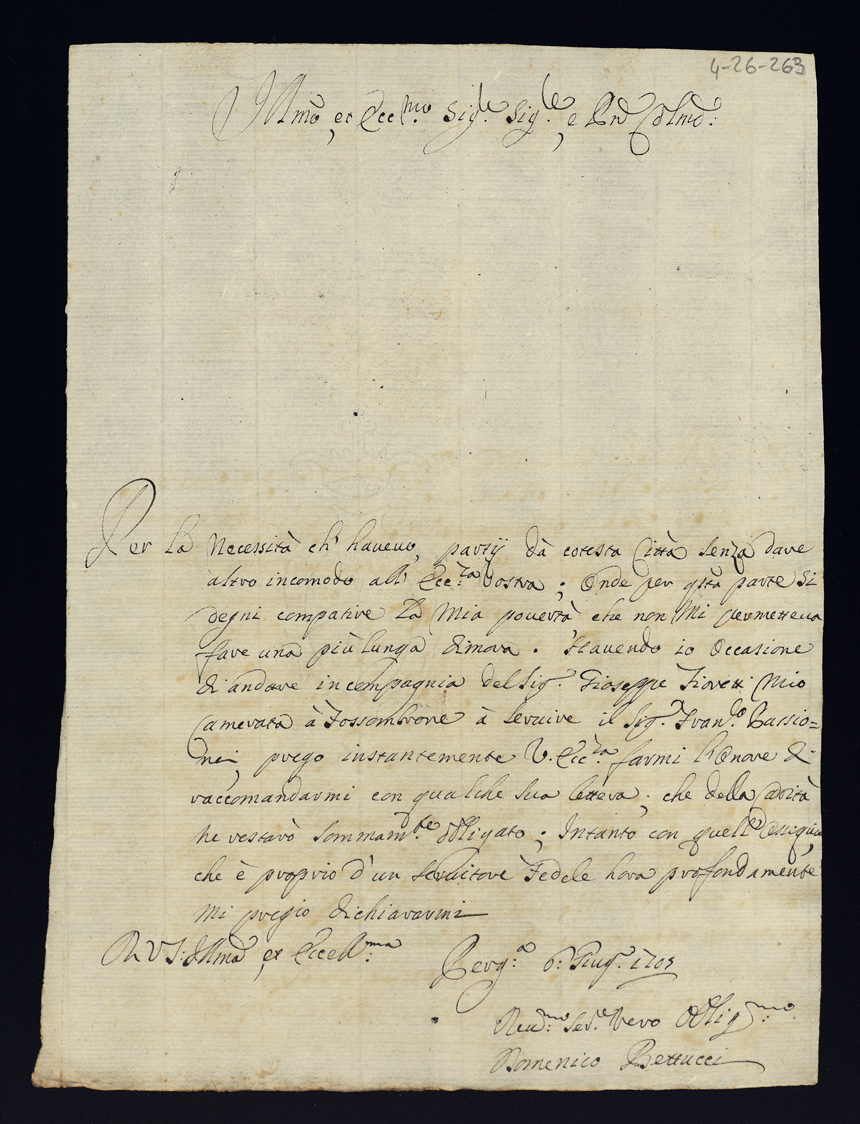 4-26-263
Illmo, et Ecc.mo Sig.re Sig.re, e Pne Colmo:
Per la necessità ch' haueuo, partij dà cotesta Città senza dare
altro incomodo all' Ecc.za Vostra; Onde per qsta parte si
degni compatire la mia pouertà che non mi permetteua
fare una più lunga dimora. Hauendo io occasione
di andare in compagnia del Sig.r Gioseppe Fioretti mio
Camerata à Fossombrone à seruire il Sig.r Fran.co
prego instantemente V. Ecc.za farmi l'Onore di
raccomandarmi con qualche sua lettera, che della Carità
ne restarò sommam.te obligato; Intanto con quell'ossequio,
che è proprio d'un seruitore Fedele hora profondamente
mi pregio dichiararmi
Di VS: Illma, et Eccell.ma
Perg.a 6: Giug. 1705
Deuot.mo Ser.e vero Oblig.mo
Domenico Bettucci